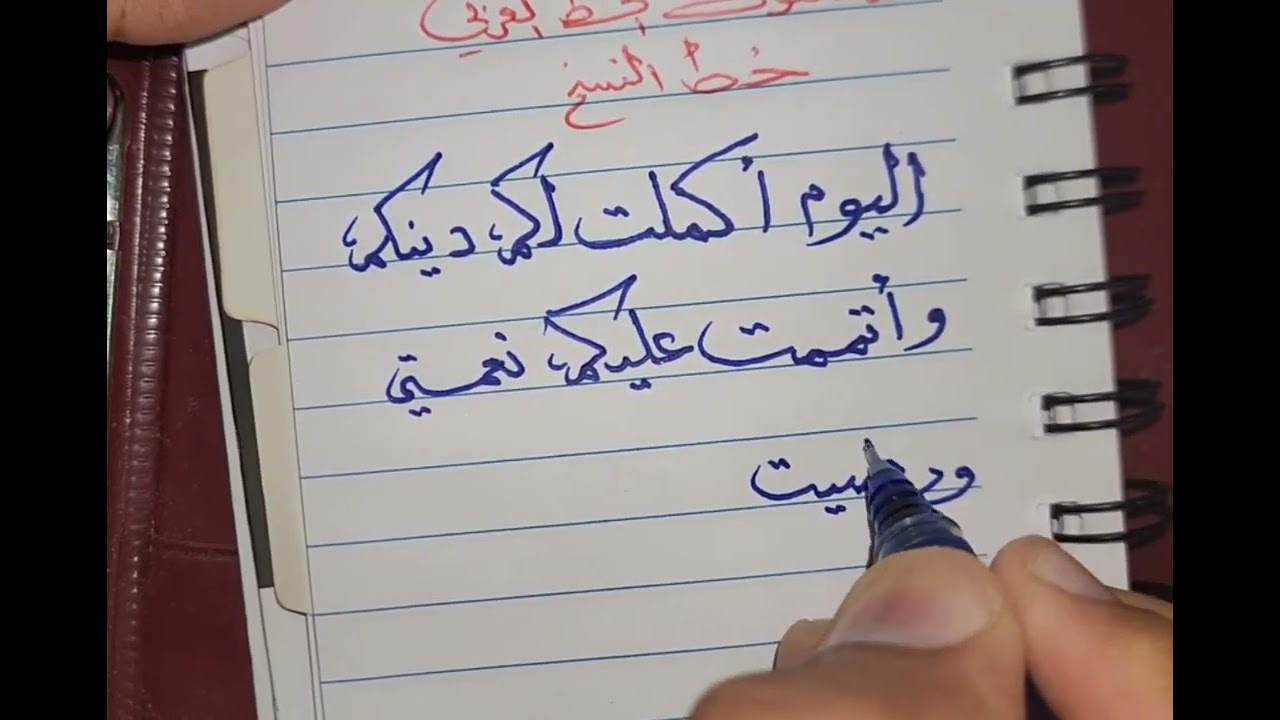 الخط العربي
خط النسخ
اليوم أكملت لكم دينكم
وأتممت عليكم نعمتي
ورضيت